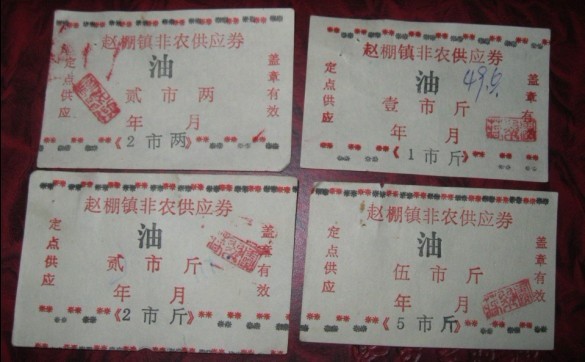 赵棚镇非农供应券
定点供应
油
盖章有效
贰市两
年 月
《2市两》
赵棚镇非农供应券
定点供应
油
盖章有效
49.5.
壹市斤
年 月
《1市斤》
赵棚镇非农供应券
定点供应
油
盖章有效
贰市斤
年 月
《2市斤》
赵棚镇非农供应券
定点供应
油
盖章有效
伍市斤
年 月
《5市斤》